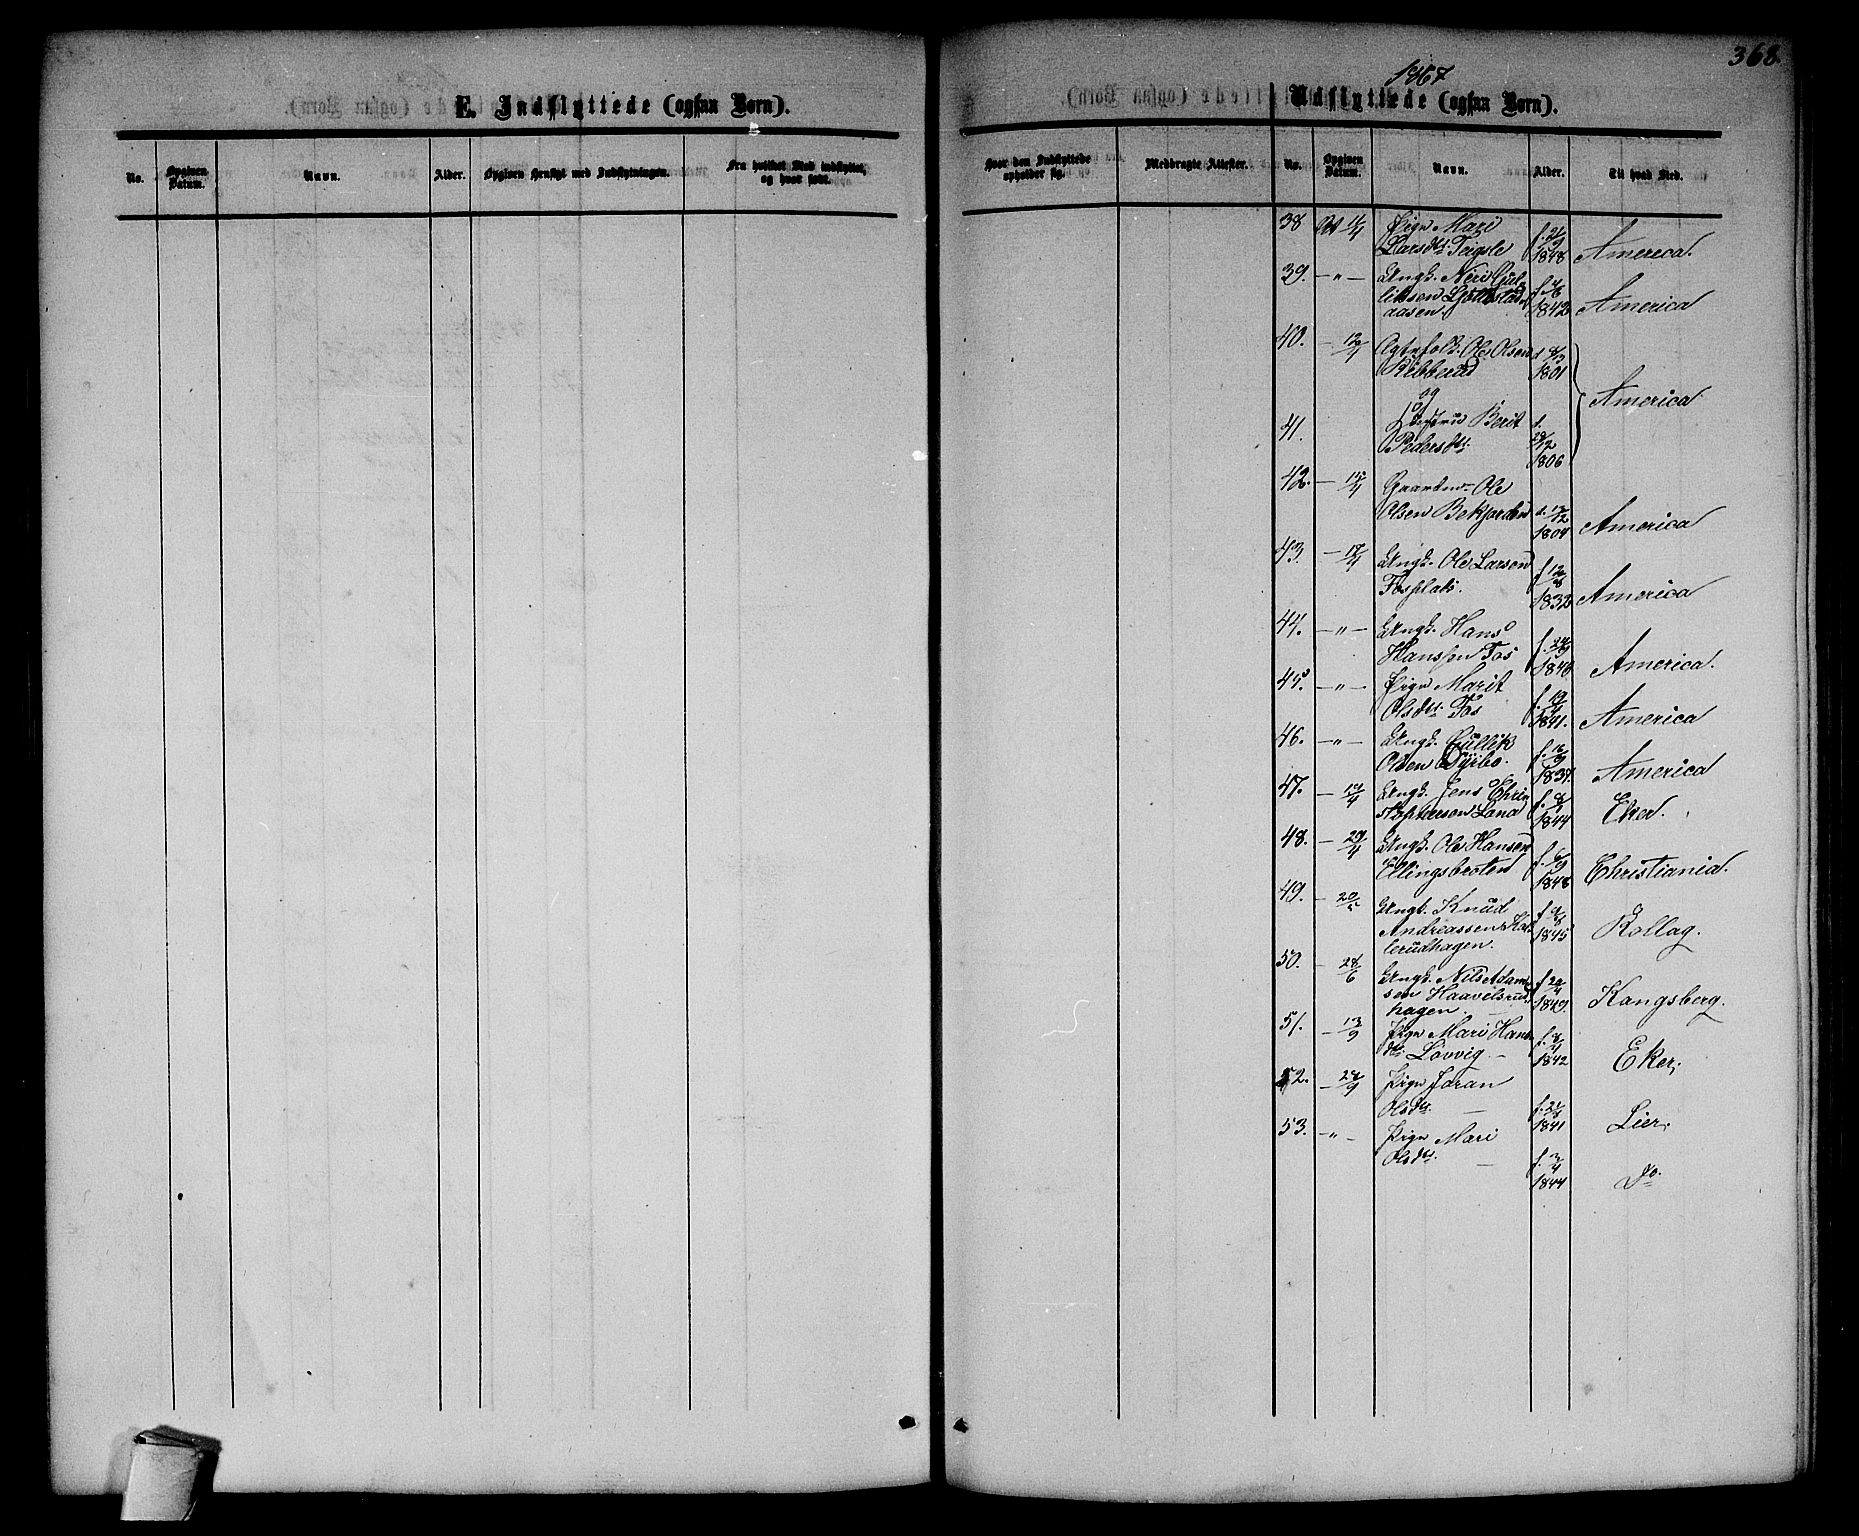 368.
E. Indflyttede (ogsaa Børn).
No.
Opgiven Datum.
Navn.
Alder.
Opgiven Hensigt med Indflytningen.
Fra hvilket Sted indflyttet, og hvor født.
1867
Udflyttede (ogsaa Børn).
Hvor den Indflyttede opholder sig.
Medbragte Attester.
No.
Opgiven Datum.
Navn.
Alder.
Til hvad Sted.
38 11/4 Pige Mari
Larsdtr. Teigsle 1848 America.
39. — " — Ungk. Neri Gul-
liksen
aasen. 1842 America
40. — 12/4 Ole Olsen
Ribberud 1801
og America
41. Berit
Pedersdtr. 1806
42. — 15/4 Ole
Olsen 1804 America
43. — 17/4 Ungk. Ole Larsen
Fosplads. 1832 America
44. — " — Ungk. Hans
Hanssen Fos America.
45. — " — Pige Marit
Olsdtr. Fos 1841. America
46. — " — Ungk. Gullik
Olsen 1837. America
47. — 19/4 Ungk. Jens Chri-
stophersen 1844 Eker.
48. — 29/4 Ungk. Ole Hansen
Ellingsbroten 1848 Christiania.
49. — 20/5 Ungk. Knud
Andreassen
lerudhagen. 1845 Rollag.
50. — 28/6 Ungk. Nils Adam-
sen Haavelsrud-
hagen. 1849. Kongsberg.
51. — 13/9 Pige Mari Hans-
dtr. Løvvig. — 1842 Eker.
52. — 28/9 Pige Joran
Olsdtr. — 1841 Lier.
53. — " — Pige Mari
Olsdtr. — f. 3/4
1844 Do.